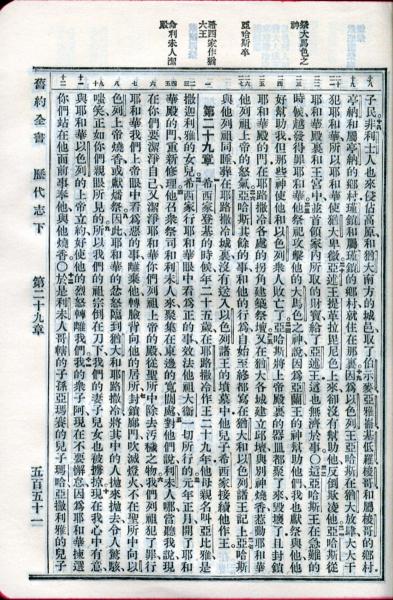 祭大馬色之神
亞哈斯卒
希西家作猶大王
命利未人潔殿
子民非利士人也來侵佔高原和猶大南方的城邑取了伯示麥亞雅崙基低羅梭哥和屬梭哥的鄉村
亭納和屬亭納的鄉村瑾鎖和屬瑾鎖的鄉村就住在那裏因爲以色列王亞哈斯在猶大放肆大大干
犯耶和華所以耶和華使猶大卑微亞述王提革拉毘尼色上來卻沒有幫助他反倒欺凌他亞哈斯從
耶和華殿裏和王宮中並首領家內所取的財寶給了亞述王這也無濟於事〇這亞哈斯王在急難的
時候越發得罪耶和華他祭祀攻擊他的大馬色之神說因爲亞蘭王的神幫助他們我也獻祭與他他
好幫助我但那些神使他和以色列衆人敗亡了亞哈斯將上帝殿裏的器皿都聚了來毀壞了且封鎖
耶和華殿的門在耶路撒冷各處的拐角建築祭壇又在猶大各城建立邱壇與別神燒香惹動耶和華
列祖上帝的怒氣亞哈斯其餘的事和他的行爲自始至終都寫在猶大和以色列諸王記上亞哈斯
與他列祖同睡葬在耶路撒冷城裏沒有送入以色列諸王的墳墓中他兒子希西家接續他作王
第二十九章 希西家登基的時候年二十五歲在耶路撒冷作王二十九年他母親名叫亞比雅是
撒迦利雅的女兒希西家行耶和華眼中看爲正的事效法他祖大衛一切所行的元年正月開了耶和
華殿的門重新修理他召衆祭司和利未人來聚集在東邊的寬闊處對他們說利未人哪當聽我說現
在你們要潔淨自己又潔淨耶和華你們列祖上帝的殿從聖所中除去污穢之物我們列祖犯了罪行
耶和華我們上帝眼中看爲惡的事離棄他轉臉背向他的居所封鎖廊門吹滅燈火不在聖所中向以
色列上帝燒香或獻燔祭因此耶和華的忿怒臨到猶大和耶路撒冷將其中的人拋來拋去令人驚駭
嗤笑正如你們親眼所見的所以我們的祖宗倒在刀下我們的妻子兒女也被擄掠現在我心中有意
與耶和華以色列的上帝立約好使他的烈怒轉離我們我的衆子阿現在不要懈怠因爲耶和華揀選
你們站在他面前事奉他與他燒香〇於是利未人哥轄的子孫亞瑪賽的兒子瑪哈亞撒利雅的兒子
舊約全書 歷代志下 第二十九章 五百五十一